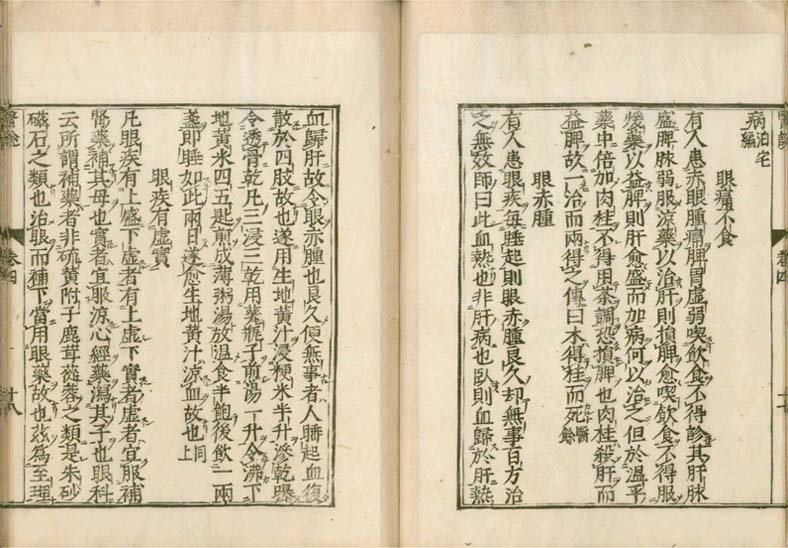 病泊宅編
眼痛不食
有人患赤眼腫痛脾胃虛弱喫飲食不得診其肝脉
盛脾脉弱服涼藥以治肝則損脾愈喫飲食不得服
煖藥以益脾則肝愈盛而加病何以治之但於溫平
藥中倍加肉桂不得用茶調恐損脾也肉桂殺肝而
益脾故一治而兩得之傳曰木得桂而死醫餘
眼赤腫
有人患眼疾每睡起則眼赤腫良久却無事百方治
之無效師曰此血熱也非肝病也臥則血歸於肝熱
血歸肝故令眼赤腫也良久便無事者人睡起血復
散於四肢故也遂用生地黃汁浸粳米半升滲乾曝
令透骨乾凡三浸三乾用甆瓶子煎湯一升令沸下
地黃米四五匙煎成薄粥湯放溫食半飽後飲一兩
盞即睡如此兩日遂愈生地黃汁涼血故也同上
眼疾有虛實
凡眼疾有上盛下虛者有上虛下實者虛者宜服補
腎藥補其母也實者宜服涼心經藥瀉其子也眼科
云所謂補藥者非硫黃附子鹿茸蓯蓉之類是朱砂
磁石之類也治眼而補下當用眼藥故也玆為至理
醫說
卷四